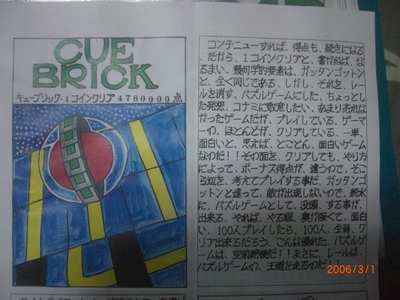 CUE
BRICK
キューブリック・1コインクリア4780000点
コンテニューすれば、得点も、続きになる
。だから、1コインクリアと、書かねば、な
るまい、幾何学的要素は、ガッタンゴットン
と、全く同じである。しかし、それを、レー
ルを消す、パズルゲームにした、ちょっとし
た発想、コナミに敬意したい、あまり売れな
かったゲームだが、プレイしている、ゲーマ
ーの、ほとんどが、クリアしている、一単、
面白いと、思えば、とことん、面白いゲーム
なのだ!!その面を、クリアしても、やり方
によって、ボーナス得点が、違うので、そこ
ら辺を、考えてプレイする事だ、ガッタンゴ
ットンと違って、敵が出現しないので、純水
に、パズルゲームとして、没頭、する事が、
出来る、やれば、やる程、奥が深くて、面白
い、100人プレイしたら、100人、全員、ク
リア出来るだろう、こんな優れた、パズルゲー
ムは、空前絶後だ!!まさに、レールは、
パズルゲームの、王道を走るのだ!!
2006/3/1